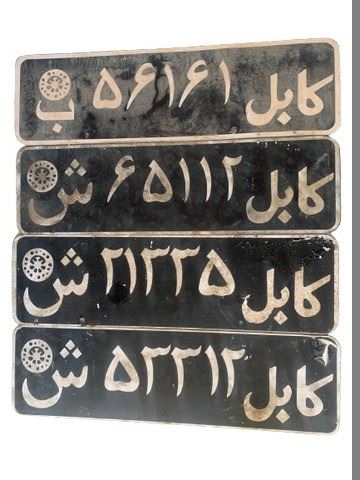 کابل ۵۶۱۶۱ ب
کابل ۶۵۱۱۲ ش
کابل ۲۱۳۳۵ ش
کابل ۵۳۳۱۲ ش